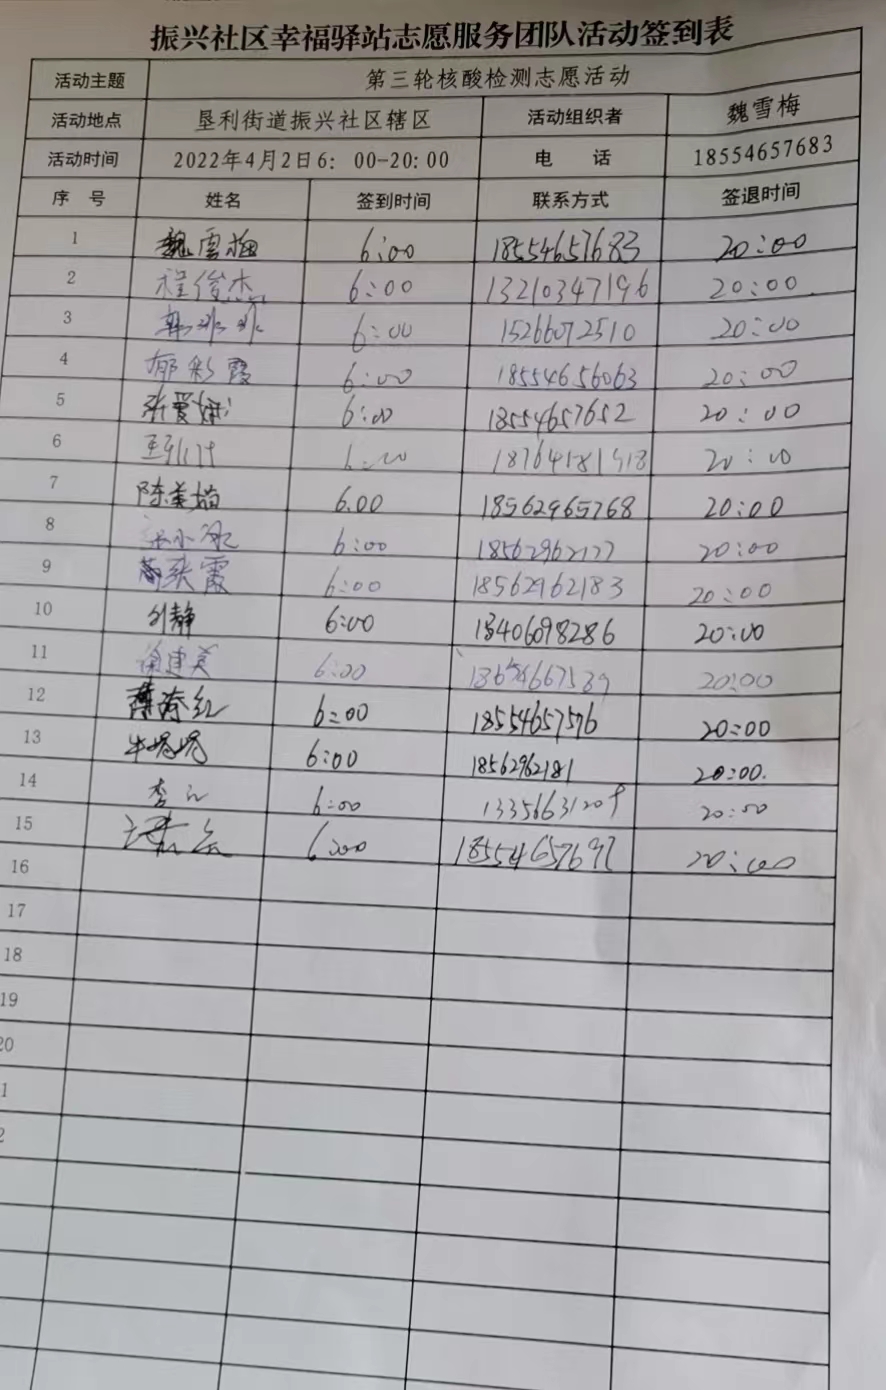 振兴社区幸福驿站志愿服务团队活动签到表
活动主题 第三轮核酸检测志愿活动
活动地点 垦利街道振兴社区辖区 活动组织者 魏雪梅
活动时间 2022年4月2日6:00-20:00 电 话 18554657683
序 号 姓名 签到时间 联系方式 签退时间
1 魏雪梅 6:00 18554657683 20:00
2 程俊杰 6:00 13210347196 20:00
3 韩 6:00 15266072510 20:00
4 郁彩霞 6:00 18554656063 20:00
5 张爱 6:00 18554657652 20:00
6 20:00
7 陈美娟 6.00 18562965768 20:00
8 6:00 20:00
9 霞 6:00 18562962183 20:00
10 刘静 6:00 13406098286 20:00
11 徐建英 6:00 20:00
12 红 6:00 18554657576 20:00
13 牛娟娟 6:00 18562962181 20:00.
14 李 6:00 20:00
15 6:00 20:00
16
17
18
19
20
1
2